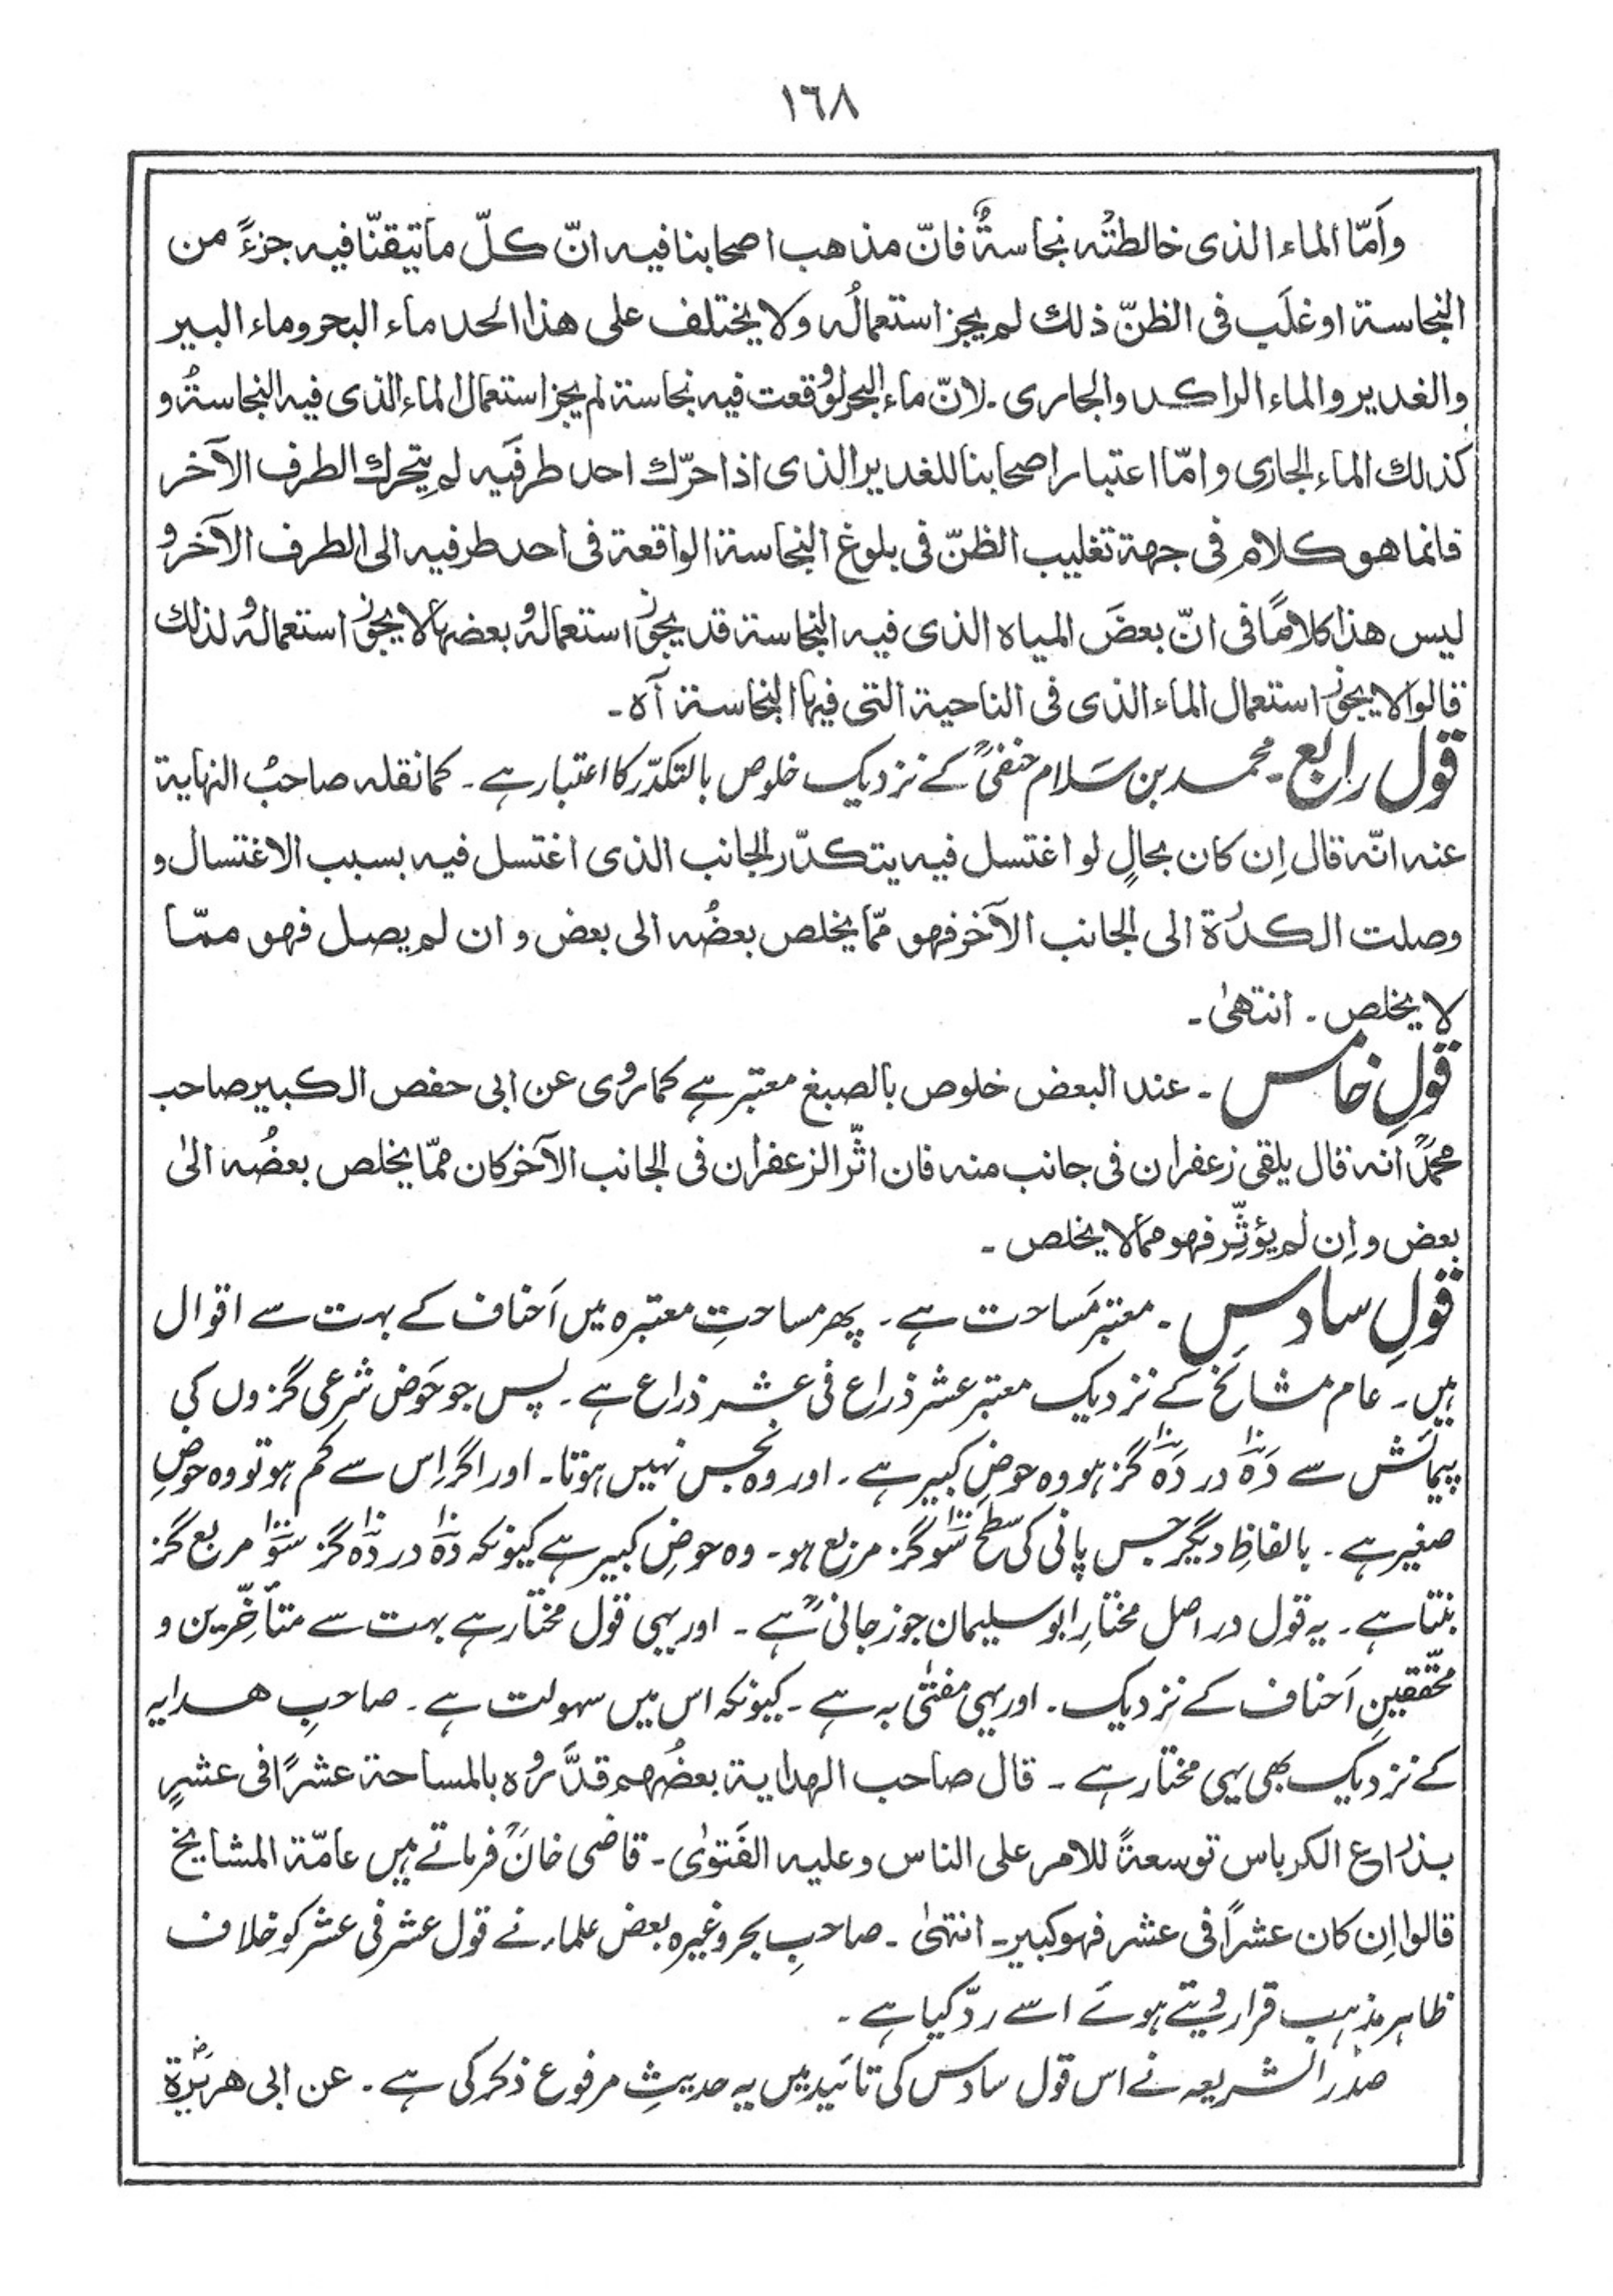 ١٦٨
وَاَمّا الماء الذی خالطتْه نجاسةٌ فانّ مذهب اصحابنا فیه انّ کلّ ما تیقنّا فیه جزءً من
النجاسة او غلَب فی الظنّ ذلك لم یجز استعمالُه ولا یختلف علی هذا الحد ماء البحر وماء البیر
والغدیر والماء الراکد والجاری ۔ لانّ ماء البحر لو وقعت فیه نجاسة لم یجز استعمال الماء الذی فیه النجاسةُ و
کذلك الماء الجاری و امّا اعتبار اصحابنا للغدیر الذی اذا حرّك احد طرفَیه لم یتحرك الطرف الآخر
فانما هو کلام فی جهة تغلیب الظنّ فی بلوغ النجاسة الواقعة فی احد طرفیه الی الطرف الآخر و
لیس هذا کلامًا فی انّ بعضَ المیاه الذی فیه النجاسة قد یجوز استعماله و بعضها لا یجوز استعماله و لذلك
قالوا لا یجوز استعمال الماء الذی فی الناحیة التی فیها النجاسة آه ۔
قول رابع ۔ محمد بن سَلام حنفیؒ کے نزدیک خلوص بالتکدّر کا اعتبار ہے ۔ کما نقله صاحبُ النهایة
عنه انّه قال اِن کان بحالٍ لو اغتسل فیه یتکدّر الجانب الذی اغتسل فیه بسبب الاغتسال و
وصلت الکدُرة الی الجانب الآخر فهو ممّا یخلص بعضُه الی بعض و ان لم یصل فهو ممّا
لا یخلص ۔ انتهیٰ ۔
قولِ خامس ۔ عند البعض خلوص بالصبغ معتبر ہے کما رُوی عن ابی حفص الکبیر صاحب
محمدؒ انه قال یلقی زعفران فی جانب منه فان اثّر الزعفران فی الجانب الآخر کان ممّا یخلص بعضُه الیٰ
بعض و اِن لم یؤثِّر فهو مما لا یخلص ۔
قولِ سادس ۔ معتبر مَساحت ہے ۔ پھر مساحتِ معتبرہ میں اَحناف کے بہت سے اقوال
ہیں ۔ عام مشائخ کے نزدیک معتبر عشر ذراع فی عشر ذراع ہے ۔ پس جو حَوض شرعی گزوں کی
پیمائش سے دَہ۱۰ در دَہ۱۰ گز ہو وہ حوضِ کبیر ہے ۔ اور وہ نجس نہیں ہوتا ۔ اور اگر اِس سے کم ہو تو وہ حوضِ
صغیر ہے ۔ بالفاظِ دیگر جس پانی کی سطح سَو۱۰۰ گز مربع ہو ۔ وہ حوضِ کبیر ہے کیونکہ دَہ۱۰ در دَہ۱۰ گز سَو۱۰۰ مربع گز
بنتا ہے ۔ یہ قول در اصل مختارِ ابو سلیمان جوزجانیؒ ہے ۔ اور یہی قول مختار ہے بہت سے متأخِّرین و
محقّقینِ اَحناف کے نزدیک ۔ اور یہی مفتیٰ بہ ہے ۔ کیونکہ اس میں سہولت ہے ۔ صاحبِ ھدایہ
کے نزدیک بھی یہی مختار ہے ۔ قال صاحب الهدایة بعضُهم قدَّروه بالمساحة عشرًا فی عشرٍ
بذراع الکرباس توسعةً للامر علی الناس وعلیه الفَتویٰ ۔ قاضی خانؒ فرماتے ہیں عامّة المشایخ
قالوا اِن کان عشرًا فی عشر فهو کبیر ۔ انتهیٰ ۔ صاحبِ بحر وغیرہ بعض علماء نے قول عشر فی عشر کو خلاف
ظاہر مذہب قرار دیتے ہوئے اسے ردّ کیا ہے ۔
صدر الشریعہ نے اس قول سادس کی تائید میں یہ حدیثِ مرفوع ذکر کی ہے ۔ عن ابی هریرةؓ